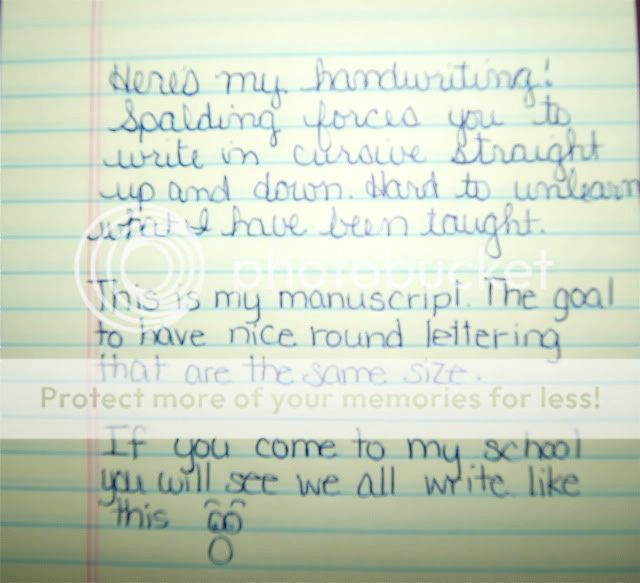 Here's my handwriting!
Spalding forces you to
write in cursive straight
up and down. Hard to unlearn
what I have been taught.
photobucket
This is my manuscript. The goal
to have nice round lettering
that are the same size.
Protect more of your memories for less!
If you come to my school
you will see we all write like
this